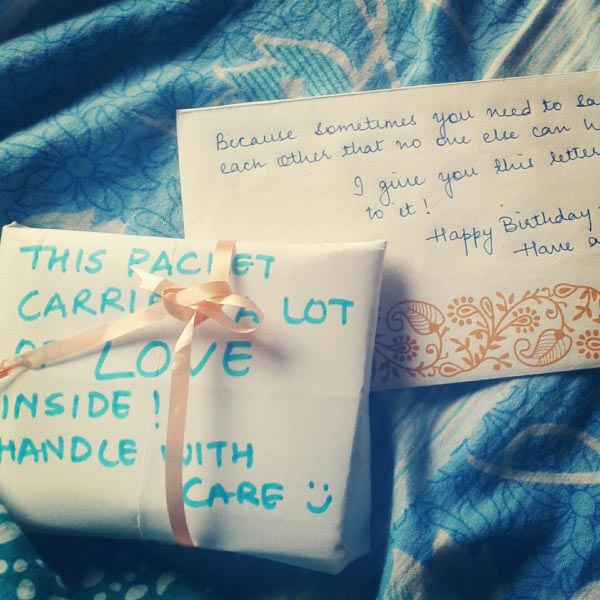 Because sometimes you need to
each other that no one else can
I give you this letter
to it!
Happy Birthday
Have a
THIS PACKET
CARRIES A LOT
OF LOVE
INSIDE!
HANDLE WITH
CARE :)